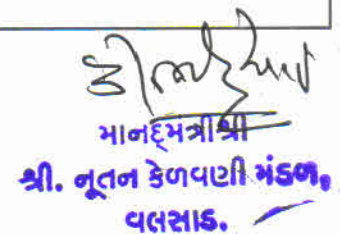 માનદ્‌મંત્રીશ્રી
શ્રી. નૂતન કેળવણી મંડળ,
વલસાડ.